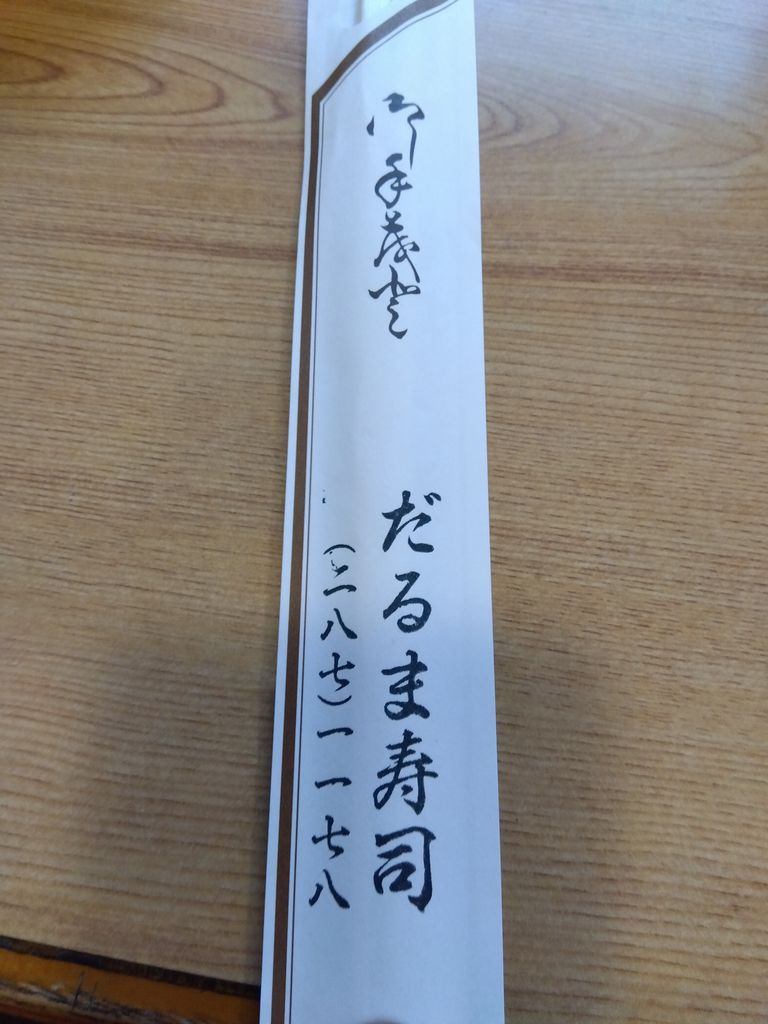 御手茂登
だるま寿司
(二八七)一一七八